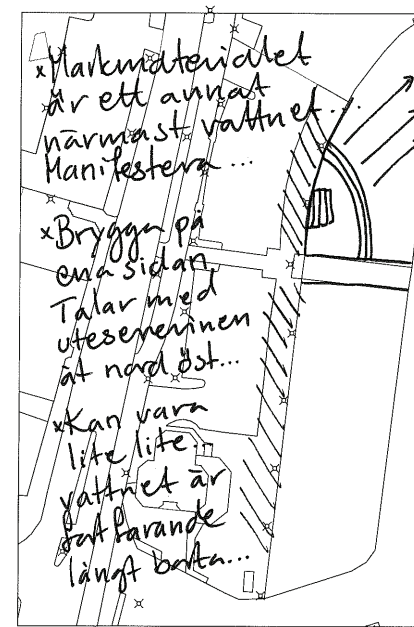 x Markmaterialet
är ett annat
närmast vattnet...
Manifestera...
x Brygga på
ena sidan
Talar med
uteserveringen
åt nord öst...
x Kan vara
lite lite...
vattnet är
fortfarande
långt borta...